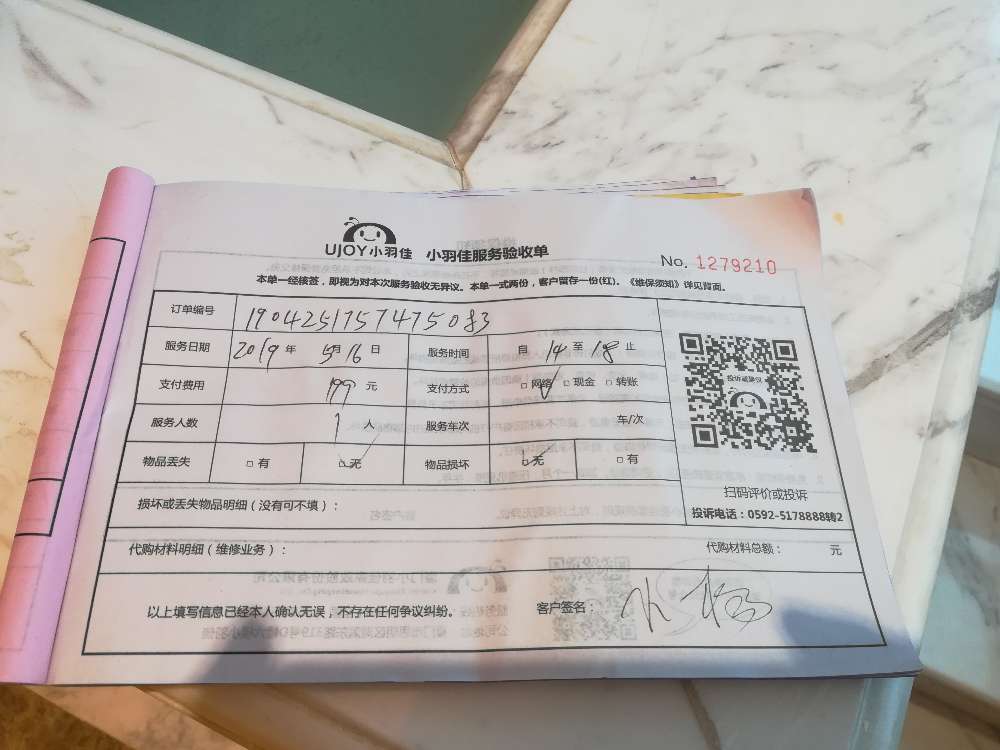 UJOY小羽佳 小羽佳服务验收单
No. 1279210
本单一经核签，即视为对本次服务验收无异议。本单一式两份，客户留存一份(红)。《维保须知》详见背面。
订单编号 1904251757475083
服务日期 2019年 5月16日 服务时间 自 14 至 18 止
支付费用 199 元 支付方式 □网络 □现金 □转账
服务人数 1 人 服务车次 车/次
物品丢失 □有 □无 物品损坏 □无 □有
投诉或建议
扫码评价或投诉
投诉电话：0592-5178888转2
损坏或丢失物品明细（没有可不填）：
代购材料明细（维修业务）： 代购材料总额： 元
以上填写信息已经本人确认无误，不存在任何争议纠纷。 客户签名：